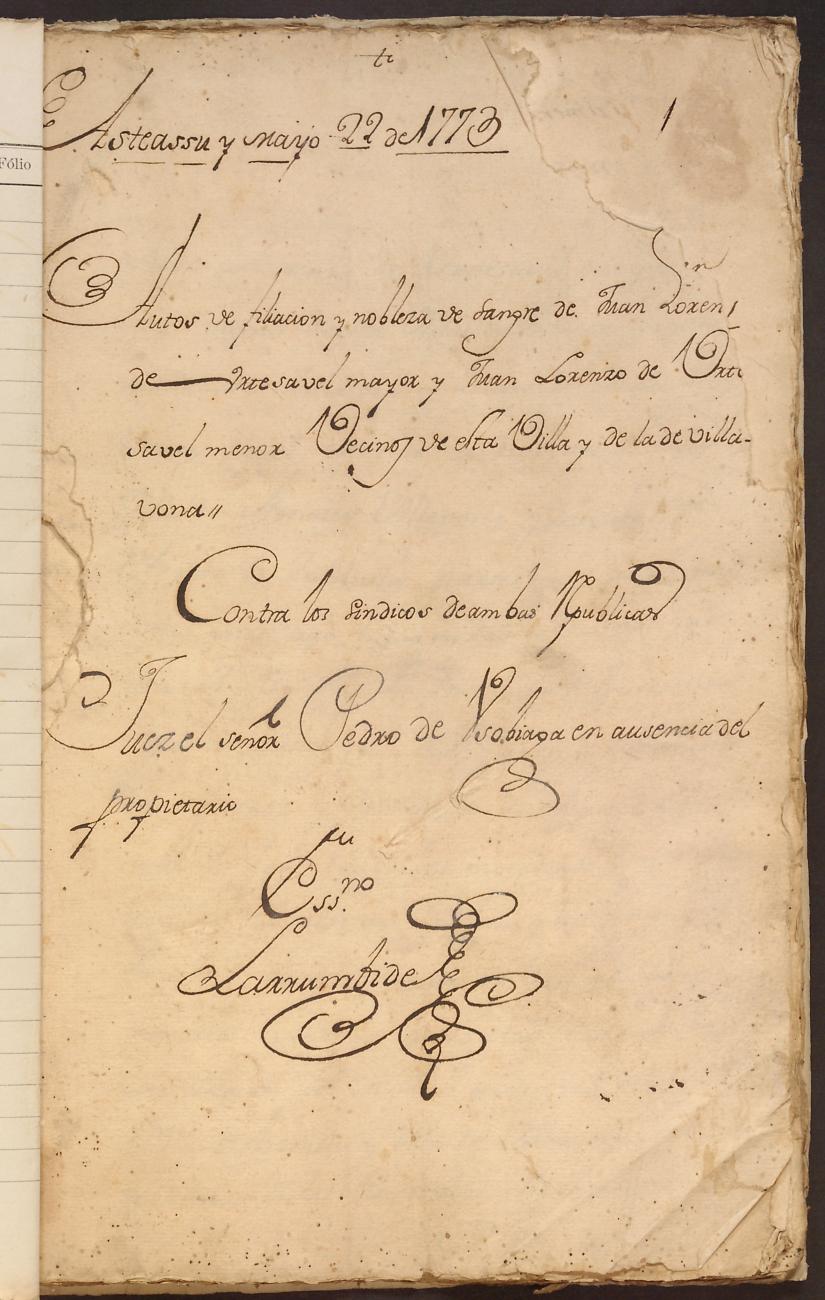 Fólio
1
Asteassu y Mayo 22 de 1773
Autos ve filiacion y nobleza ve sangre de Juan Loren
de Vrtesavel mayor y Juan Lorenzo de Vrte
savel menor Vecinos ve esta Villa y de la de villa-
vona //
Contra los sindicos de ambas Republicas
Juez el señor Pedro de Vsobiaga en ausencia del
propietario
Essno
Larrumbide